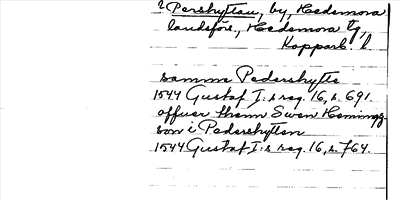 Pershyttan, by, Hedemora
landsförs., Hedemora tg,
Kopparb. l
samme Pedershytte
1544 Gustaf I:s reg. 16, s. 691.
offuer thenn Swen Hemingz
son i Pedershytten
1544 Gustaf I:s reg. 16, s. 764.